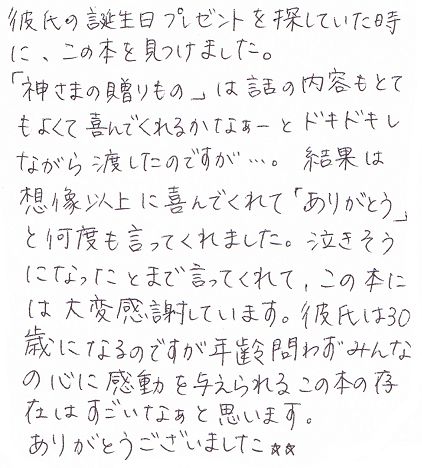 彼氏の誕生日プレゼントを探していた時
に、この本を見つけました。
「神さまの贈りもの」は話の内容もとて
もよくて喜んでくれるかなぁーとドキドキし
ながら渡したのですが…。結果は
想像以上に喜んでくれて「ありがとう」
と何度も言ってくれました。泣きそう
になったとまで言ってくれて、この本に
は大変感謝しています。彼氏は30
歳になるのですが年齢問わずみんな
の心に感動を与えられるこの本の存
在はすごいなぁと思います。
ありがとうございました☆☆